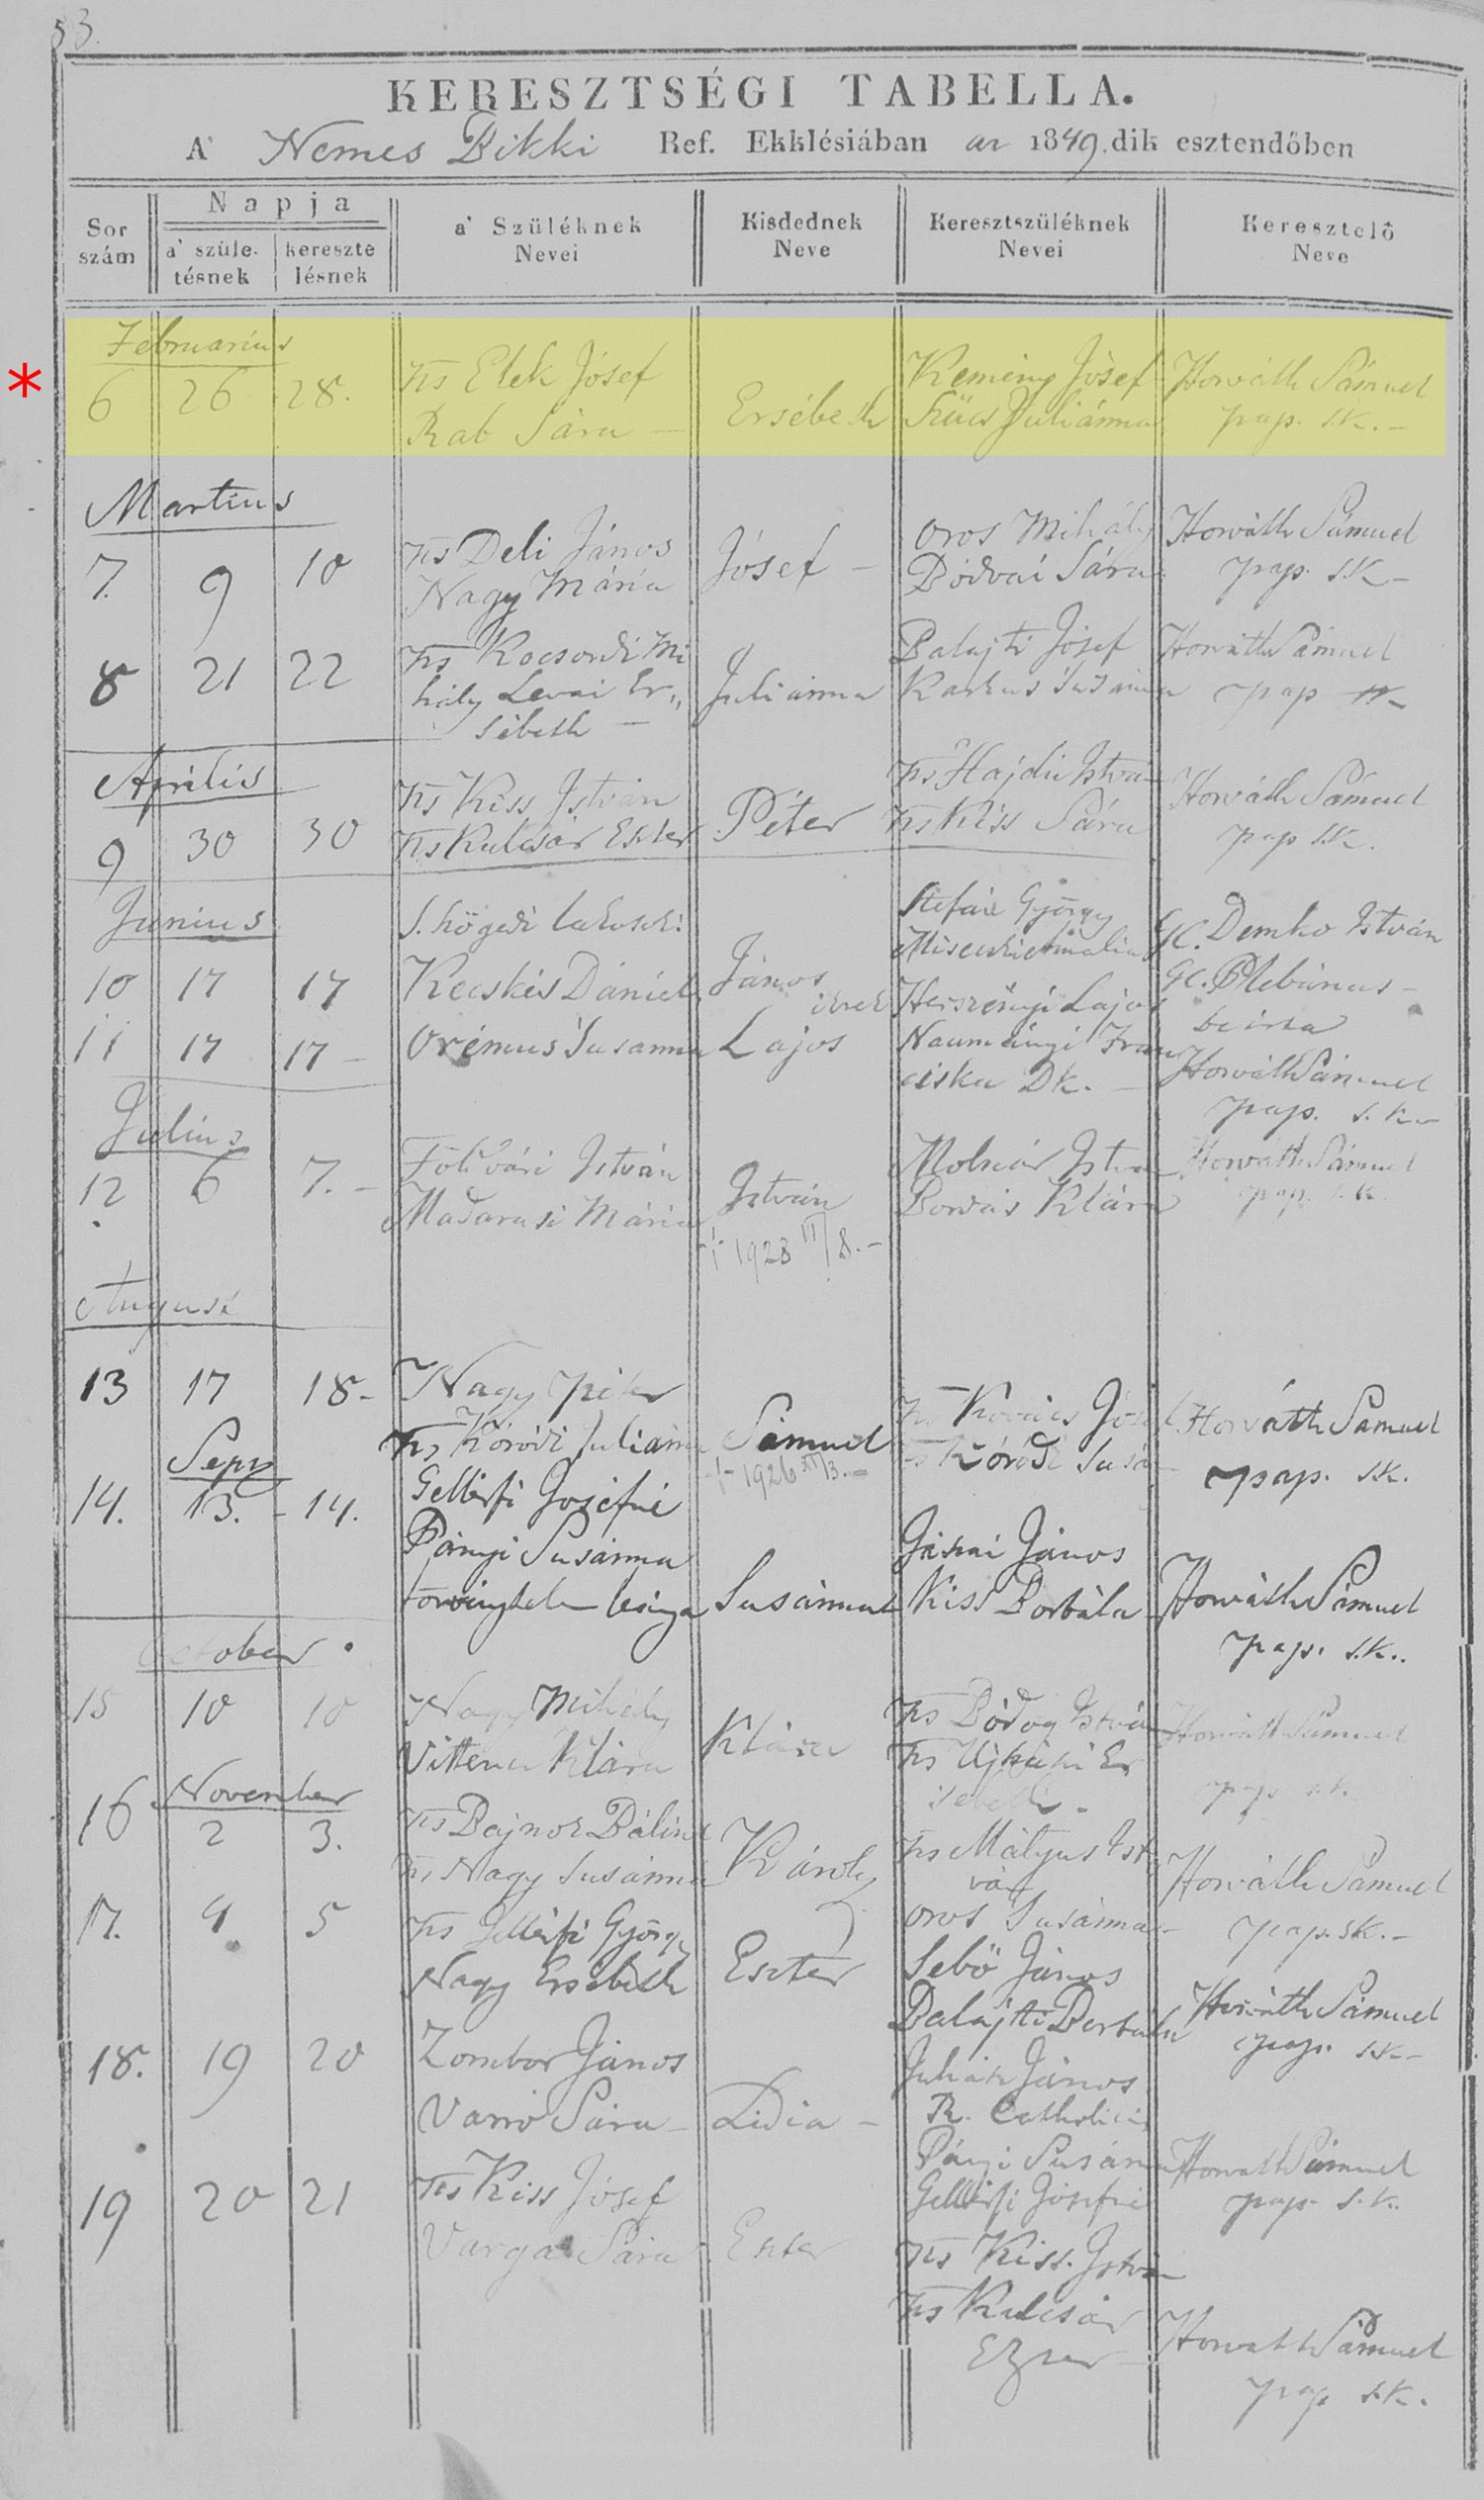 53.
KERESZTSÉGI TABELLA.
A' Nemes Bikki Ref. Ekklésiában az 1849.dik esztendőben
Sor szám
Napja
a' születésnek
keresztelésnek
a' Szüléknek Nevei
Kisdednek Neve
Keresztszüléknek Nevei
Keresztelő Neve
Februarius
6 26 28. Ns Elek Jósef
Rab Sára — Ersébeth
Kemény Jósef
Szűcs Juliánna
Horváth Sámuel
pap. s.k. —
Martius
7. 9 10 Ns Deli János
Nagy Mária
Jósef —
Oros Mihály
Bódvai Sára
Horváth Sámuel
pap. s.k —
8 21 22 Ns Kocsordi Mi
hály Levai Er„
sébeth —
Juliánna
Balajti Jósef
Susánna
Horváth Sámuel
pap
Április
9 30 30 Ns Kiss István
Ns Kulcsár Eszter
Péter
Ns Hajdu István
Ns Kiss Sára
Horváth Sámuel
pap s.k.
Junius
S. Kecskés Dániel
10 17 17 János
11 17 17 — Susanna
ikrek
Lajos
György
Lajos
ciska Dk. —
Gc. Demko István
Gc. Plebánus —
beirta
Horváth Sámuel
pap. s.k.
Julius
12 6 7. — István
Madarasi Mária
István
† 1923 III/8. —
Molnár István
Klára
Horváth Sámuel
pap. s.k.
August
13 17 18 — Nagy Péter
Ns Kóródi Juliánna
Sámuel
† 1926 XII/3. —
Ns Kovács Jósef
Ns Kóródi Susá
Horváth Sámuel
pap. s.k.
Sept
14. 13. — 14. Gellérfi Josefné
Pányi Susánna
törvénytelen leánya
Susánna
János
Kiss Borbála
Horváth Sámuel
pap. s.k..
October
15 10 10 Nagy Mihály
Klára
Klára
Ns Bódog István
Ns Er
sébeth.
Horváth Sámuel
pap s.k.
November
16 2 3. Ns Bajnok Bálint
Ns Nagy Susánna
Károly
Ns Mátyus Ist
ván
Oros Susánna —
Horváth Sámuel
pap. sk. —
17. 4 5 Ns Gellérfi György
Nagy Ersébeth
Eszter
Sebő János
Balajti Borbála
Horváth Sámuel
pap. s.k —
18. 19 20 Zombor János
Varró Sára —
Lidia —
Juhász János
R. Catholicus
Pányi Susánna
Gellérfi Josefné
Horváth Sámuel
pap. s.k.
19 20 21 Ns Kiss Jósef
Varga Sára
Eszter
Ns Kiss István
Ns Kulcsár
Horváth Sámuel
pap s.k.